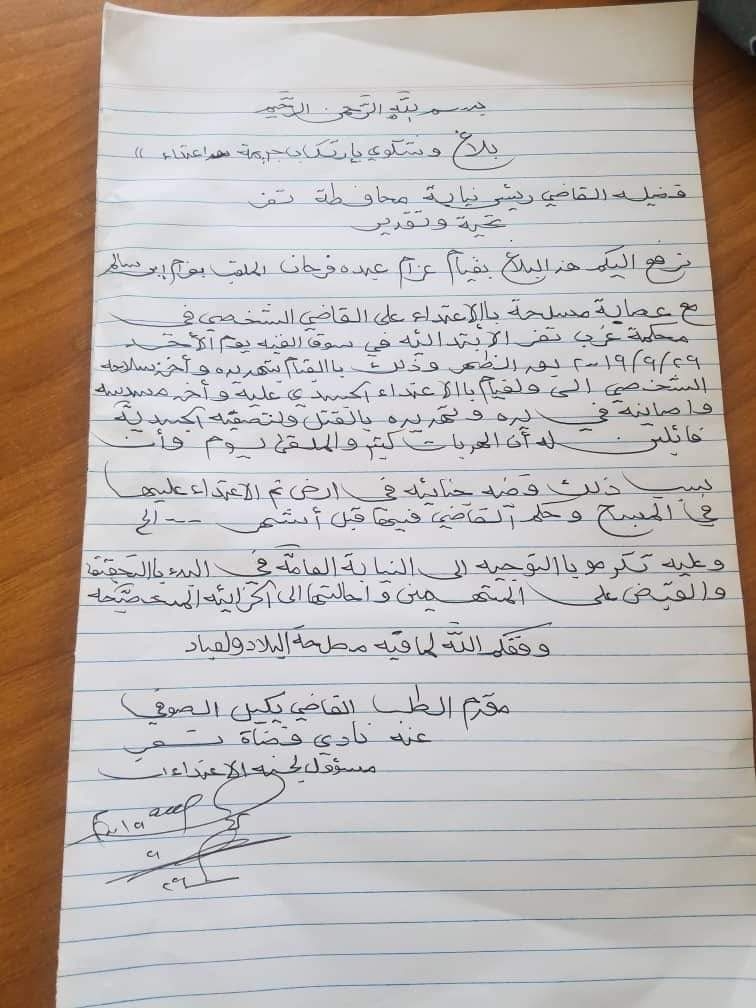 بسم الله الرحمن الرحيم
بلاغ وشكوي بإرتكاب جريمة اعتداء »
فضيله القاضي رئيس نيابة محافظة تعز
تحية وتقدير
نرفع اليكم هذ البلاغ بقيام عزام عبده فرحان الملقب بعزام ابن سالم
مع عصابة مسلحة بالاعتداء على القاضي الشخصي في
محكمة غرب تعز الأبتدائيه في سوق القبه يوم الأحد
٢٠١٩/٩/٢٩ بعد الظهر وذلك باالقيام بتهديده وأخذ سلاحه
الشخصي الى ولقيام باالاعتداء الجسدي عليه وأخذ مسدسه
واصابته في يده وتهديده بالقتل ولتصفيه الجسدية
قائلين له أن الحربات كثير والملقى يوم وأن
بسبب ذلك قضه جنائيه في ارض تم الاعتداء عليها
في المسبح وحكم القاضي فيها قبل أشهر --- الخ
وعليه تكرمو باالتوجيه الى النيابة العامة في البدء باالتحقيق
والقبض على المتهمين واحالتها الى الجزائيه المتخصصه
وفقكم الله لما فيه مصلحة البلاد ولعباد
مقدم الطلب القاضي بكيل الصوفي
عنه نادي قضاة تعز
مسؤول لجنه الاعتداءات
٩
٢٩